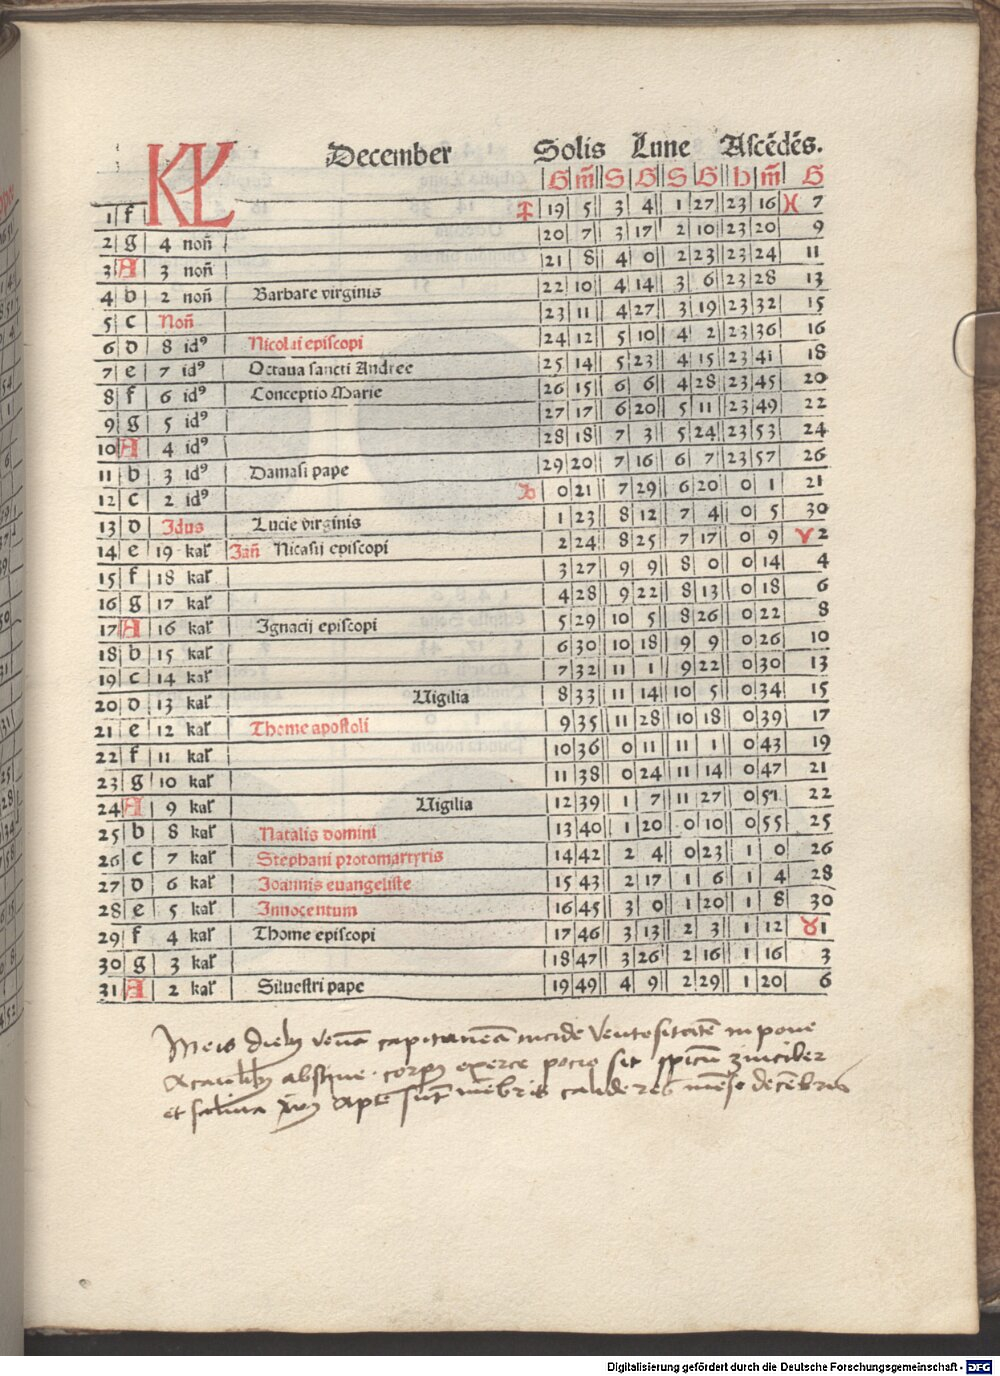 KL December Solis Lune Ascēdēs.
G m̄ S G S G h m̄ G
1 f 19 5 3 4 1 27 23 16 ♓ 7
2 g 4 non̄ 20 7 3 17 2 10 23 20 9
3 A 3 non̄ 21 8 4 0 2 23 23 24 11
4 b 2 non̄ Barbare virginis 22 10 4 14 3 6 23 28 13
5 c Non̄ 23 11 4 27 3 19 23 32 15
6 d 8 idꝰ Nicolai episcopi 24 12 5 10 4 2 23 36 16
7 e 7 idꝰ Octaua sancti Andree 25 14 5 23 4 15 23 41 18
8 f 6 idꝰ Conceptio Marie 26 15 6 6 4 28 23 45 20
9 g 5 idꝰ 27 17 6 20 5 11 23 49 22
10 A 4 idꝰ 28 18 7 3 5 24 23 53 24
11 b 3 idꝰ Damasi pape 29 20 7 16 6 7 23 57 26
12 c 2 idꝰ ♑ 0 21 7 29 6 20 0 1 21
13 d Idus Lucie virginis 1 23 8 12 7 4 0 5 30
14 e 19 kal̄ Jan̄ Nicasij episcopi 2 24 8 25 7 17 0 9 ♈ 2
15 f 18 kal̄ 3 27 9 9 8 0 0 14 4
16 g 17 kal̄ 4 28 9 22 8 13 0 18 6
17 A 16 kal̄ Ignacij episcopi 5 29 10 5 8 26 0 22 8
18 b 15 kal̄ 6 30 10 18 9 9 0 26 10
19 c 14 kal̄ 7 32 11 1 9 22 0 30 13
20 d 13 kal̄ Uigilia 8 33 11 14 10 5 0 34 15
21 e 12 kal̄ Thome apostoli 9 35 11 28 10 18 0 39 17
22 f 11 kal̄ 10 36 0 11 11 1 0 43 19
23 g 10 kal̄ 11 38 0 24 11 14 0 47 21
24 A 9 kal̄ Uigilia 12 39 1 7 11 27 0 51 22
25 b 8 kal̄ Natalis domini 13 40 1 20 0 10 0 55 25
26 c 7 kal̄ Stephani protomartyris 14 42 2 4 0 23 1 0 26
27 d 6 kal̄ Joannis euangeliste 15 43 2 17 1 6 1 4 28
28 e 5 kal̄ Innocentum 16 45 3 0 1 20 1 8 30
29 f 4 kal̄ Thome episcopi 17 46 3 13 2 3 1 12 ♉ 1
30 g 3 kal̄ 18 47 3 26 2 16 1 16 3
31 A 2 kal̄ Siluestri pape 19 49 4 9 2 29 1 20 6
venā capitaneā incide ventositatē
abstine corpꝰ exerce pocio sit zinciber
et apte sūt mēbris calide res mēse decēbris
Digitalisierung gefördert durch die Deutsche Forschungsgemeinschaft - DFG